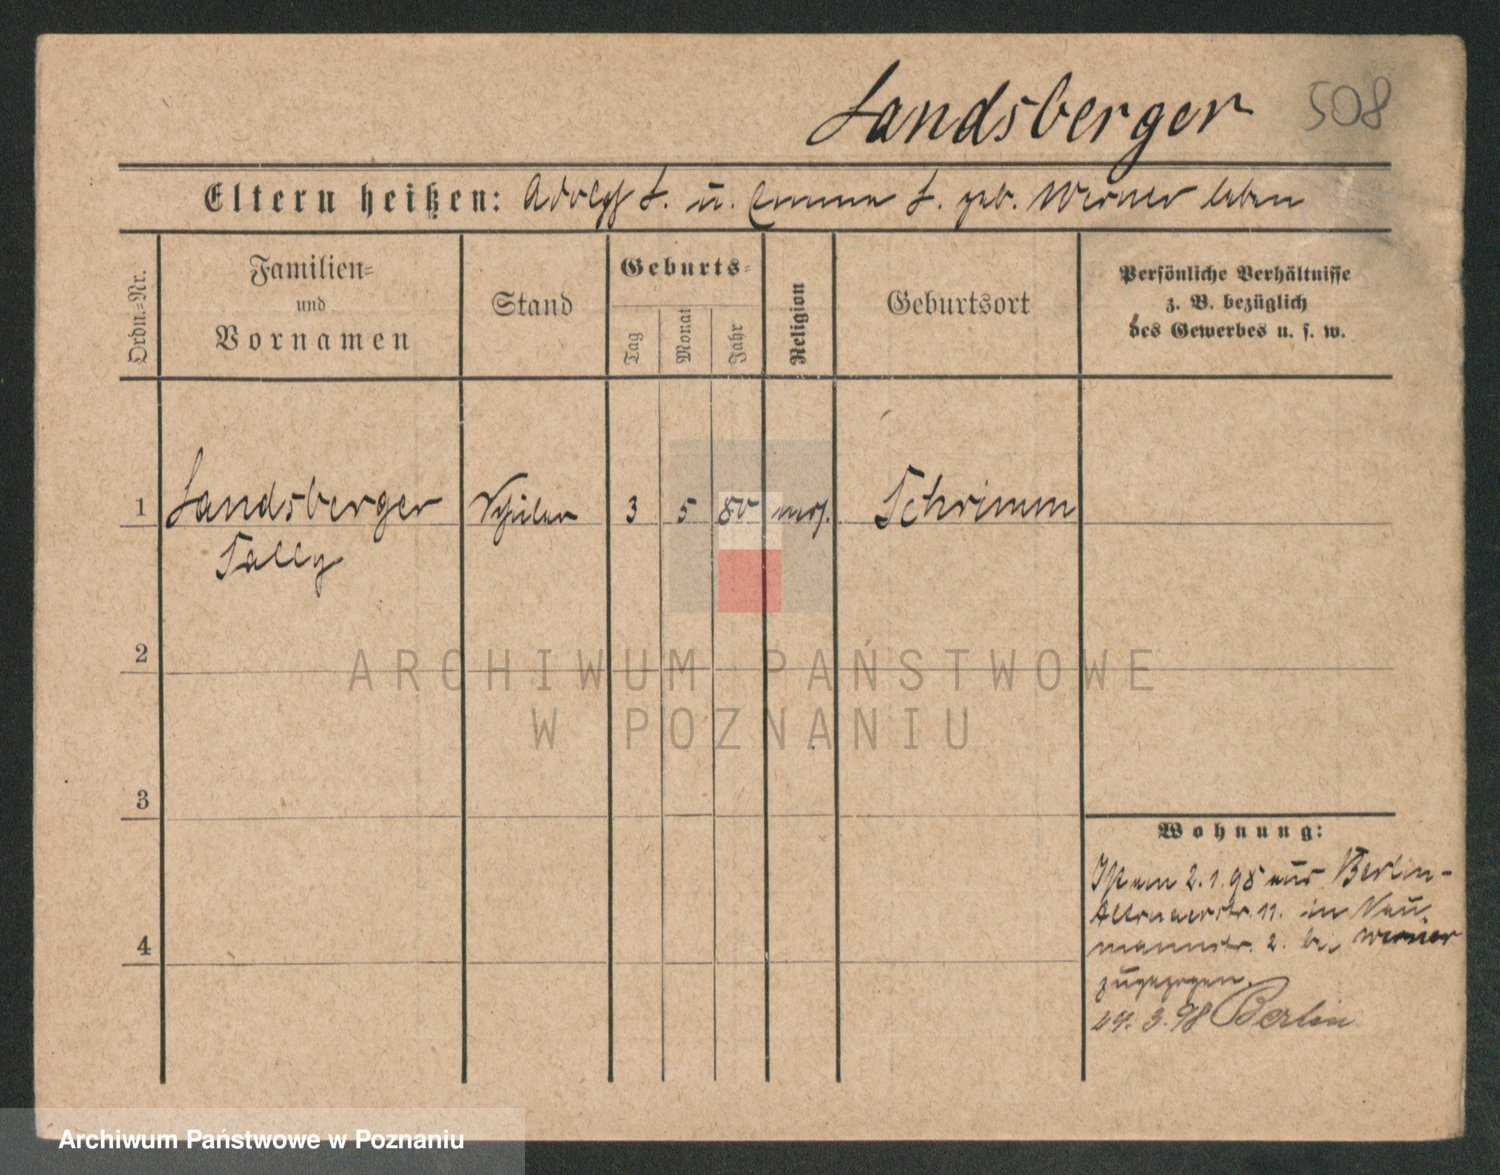 Landsberger 508
Eltern heißen: Adolf L. u. Emma L. geb. Werner leben
Ordn.-Nr.
Familien-
und
Vornamen
Stand
Geburts-
Tag
Monat
Jahr
Religion
Geburtsort
Persönliche Verhältnisse
z. B. bezüglich
des Gewerbes u. s. w.
1 Landsberger Schüler 3 5 80 mos. Schrimm
Sally
2
ARCHIWUM PAŃSTWOWE
W POZNANIU
3
Wohnung:
Ist am 2.1.98 aus Berlin-
11. in Nau-
4
mannstr. 2. bei Werner
zugezogen.
24. 3. 98 Berlin
Archiwum Państwowe w Poznaniu